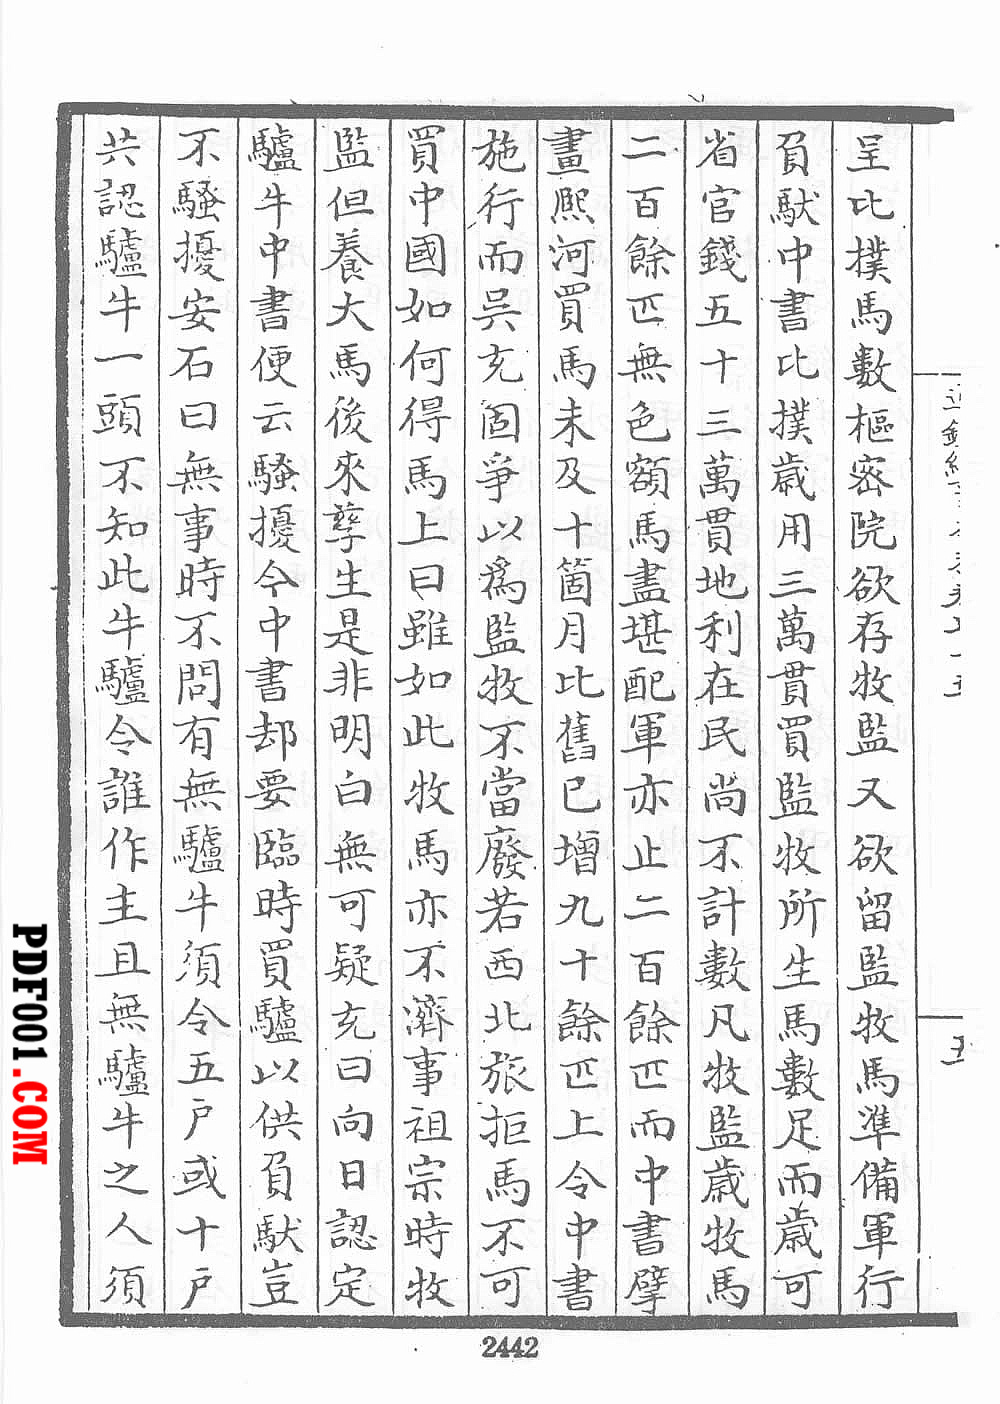 呈比撲馬數樞密院欲存牧監又欲留監牧馬準備軍行
負馱中書比撲歲用三萬貫買監牧所生馬數足而歲可
省官錢五十三萬貫地利在民尚不計數凡牧監歲牧馬
二百餘匹無色額馬盡堪配軍亦止二百餘匹而中書擘
畫熙河買馬未及十箇月比舊已增九十餘匹上令中書
施行而吳充固爭以為監牧不當廢若西北旅拒馬不可
買中國如何得馬上曰雖如此牧馬亦不濟事祖宗時牧
監但養大馬後來孳生是非明白無可疑充曰向日認定
驢牛中書便云騷擾今中書却要臨時買驢以供負馱豈
不騷擾安石曰無事時不問有無驢牛須令五戶或十戶
共認驢牛一頭不知此牛驢令誰作主且無驢牛之人須
五
2442
PDF001.COM